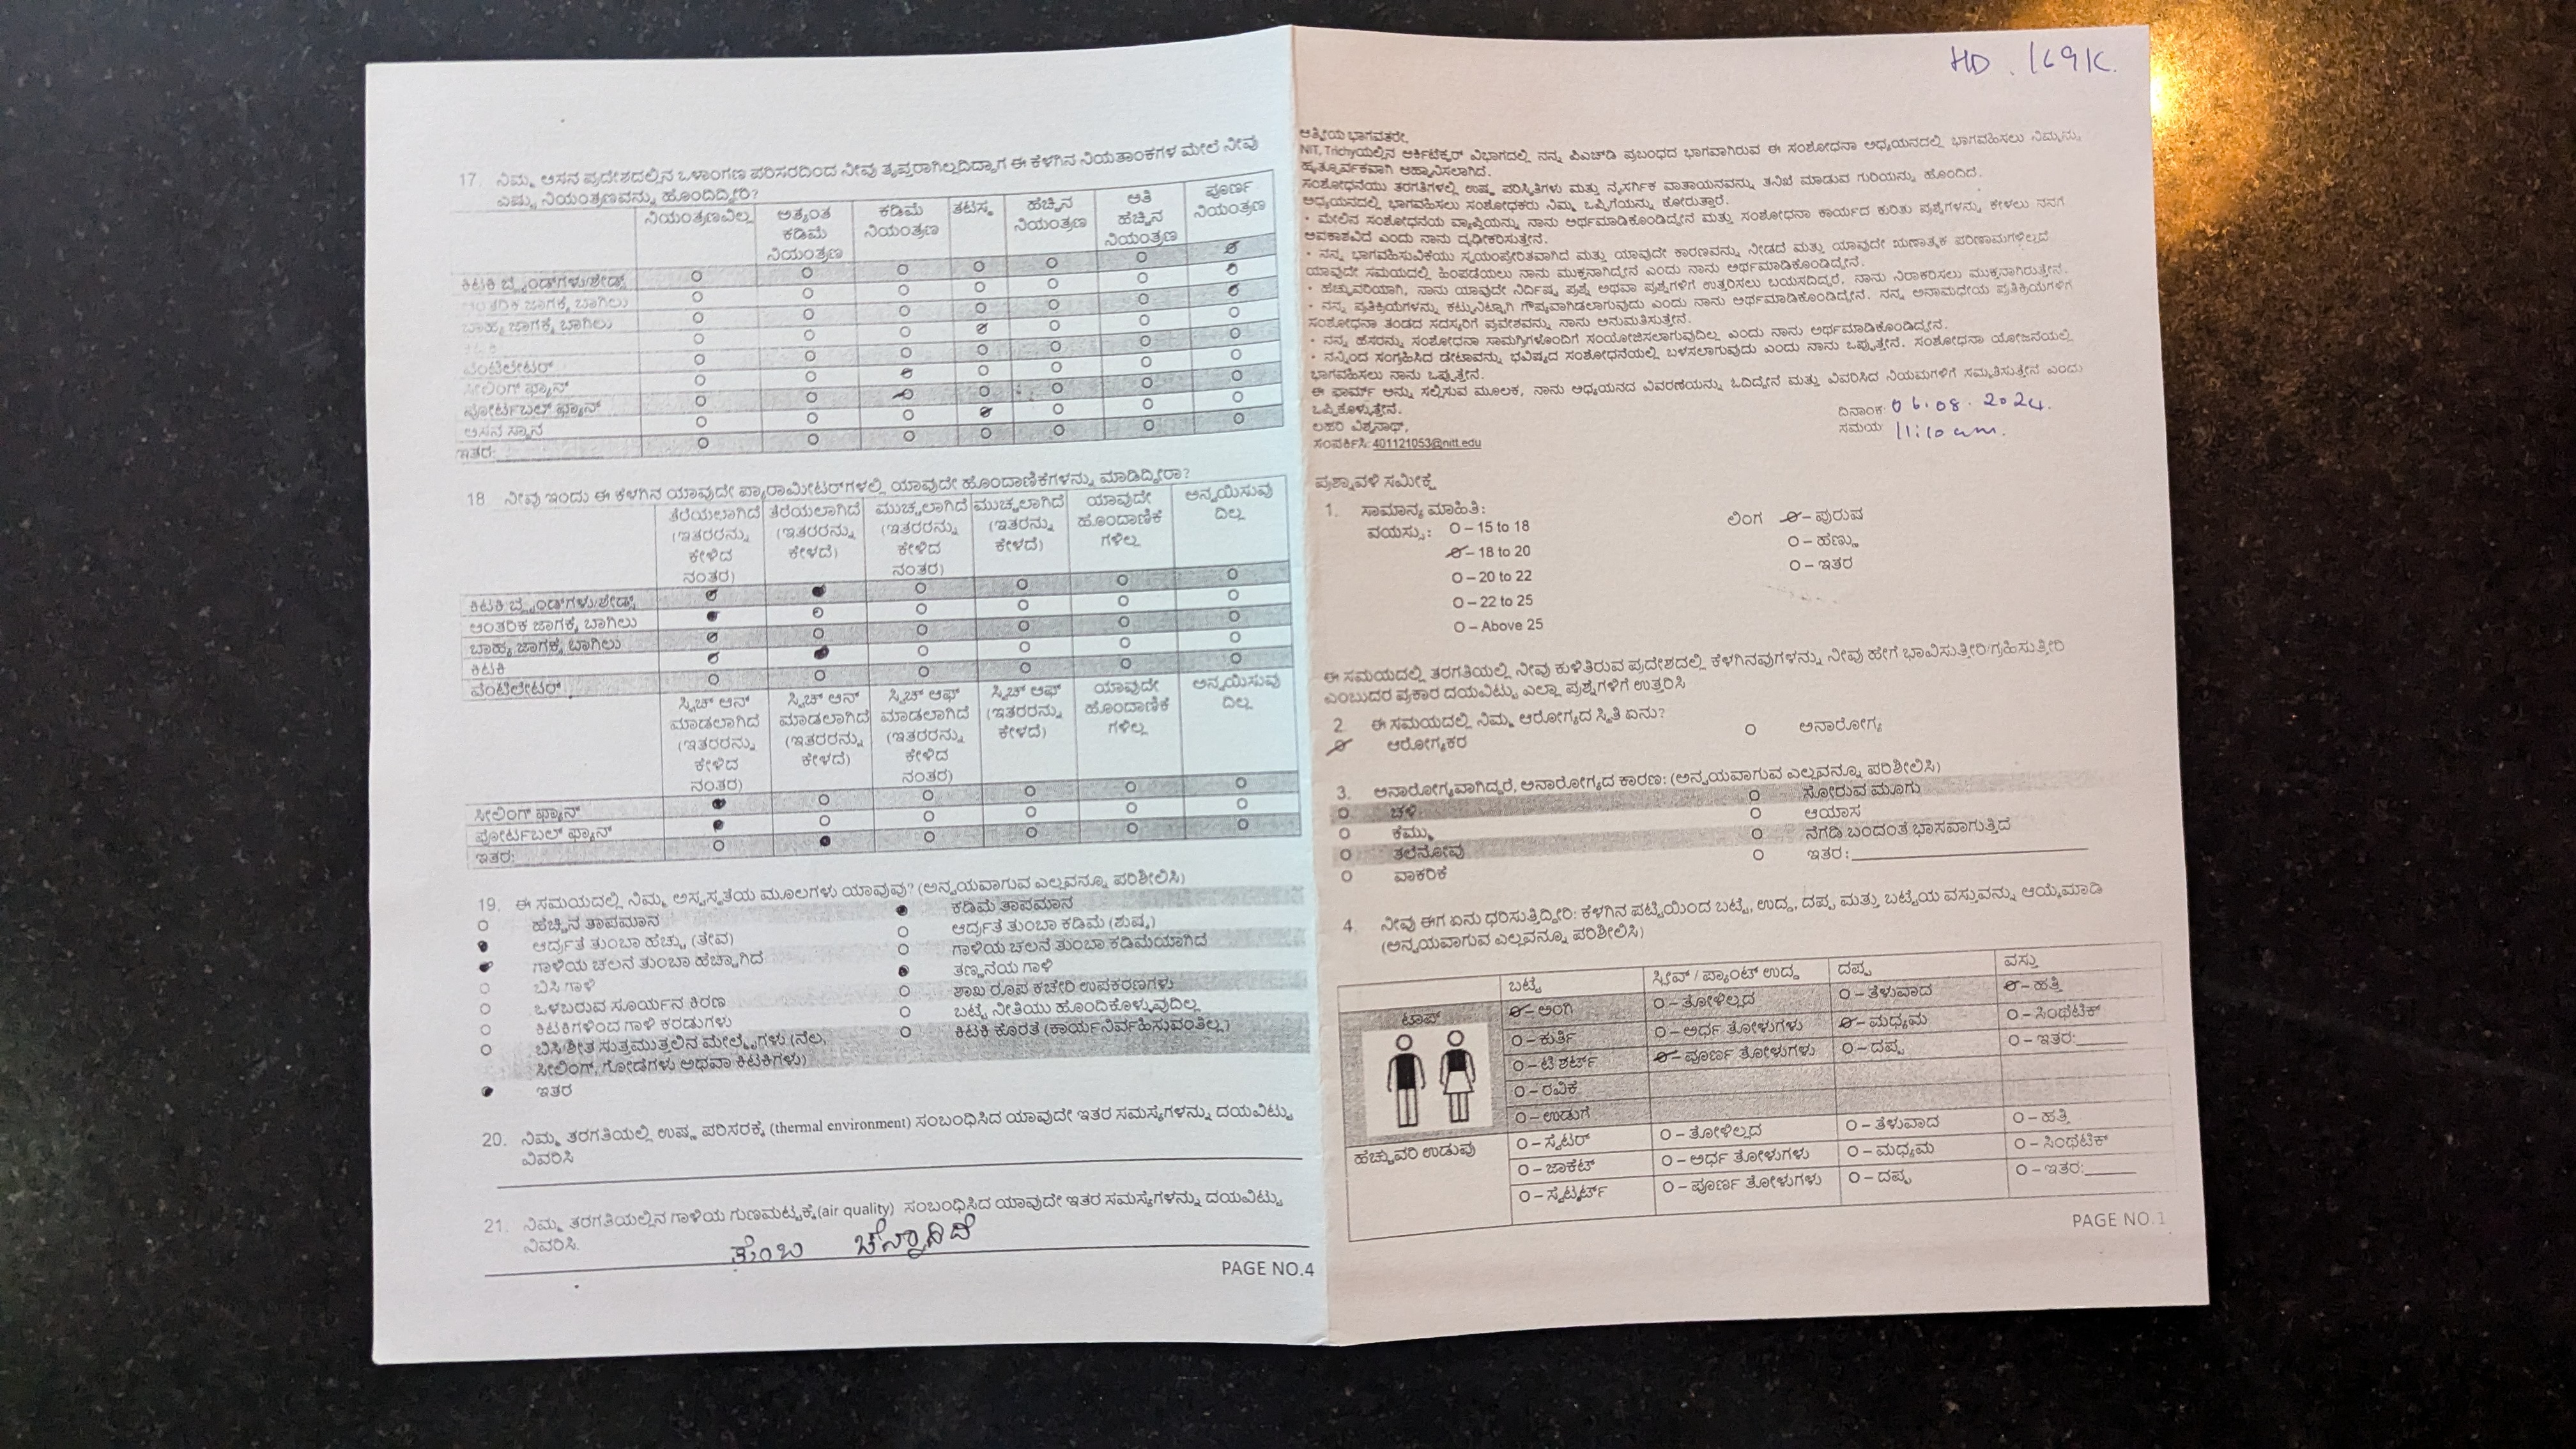 17. ನಿಮ್ಮ ಆಸನ ಪ್ರದೇಶದಲ್ಲಿನ ಒಳಾಂಗಣ ಪರಿಸರದಿಂದ ನೀವು ತೃಪ್ತರಾಗಿಲ್ಲದಿದ್ದಾಗ ಈ ಕೆಳಗಿನ ನಿಯತಾಂಕಗಳ ಮೇಲೆ ನೀವು
ಎಷ್ಟು ನಿಯಂತ್ರಣವನ್ನು ಹೊಂದಿದ್ದೀರಿ?
ನಿಯಂತ್ರಣವಿಲ್ಲ ಅತ್ಯಂತ ಕಡಿಮೆ ನಿಯಂತ್ರಣ ಕಡಿಮೆ ನಿಯಂತ್ರಣ ತಟಸ್ಥ ಹೆಚ್ಚಿನ ನಿಯಂತ್ರಣ ಅತಿ ಹೆಚ್ಚಿನ ನಿಯಂತ್ರಣ ಪೂರ್ಣ ನಿಯಂತ್ರಣ
ಕಿಟಕಿ ಬ್ಲೈಂಡ್‌ಗಳು/ಶೇಡ್ಸ್
ಆಂತರಿಕ ಜಾಗಕ್ಕೆ ಬಾಗಿಲು
ಬಾಹ್ಯ ಜಾಗಕ್ಕೆ ಬಾಗಿಲು
ಕಿಟಕಿ
ವೆಂಟಿಲೇಟರ್
ಸೀಲಿಂಗ್ ಫ್ಯಾನ್
ಪೋರ್ಟಬಲ್ ಫ್ಯಾನ್
ಆಸನ ಸ್ಥಾನ
ಇತರ:
18. ನೀವು ಇಂದು ಈ ಕೆಳಗಿನ ಯಾವುದೇ ಪ್ಯಾರಾಮೀಟರ್‌ಗಳಲ್ಲಿ ಯಾವುದೇ ಹೊಂದಾಣಿಕೆಗಳನ್ನು ಮಾಡಿದ್ದೀರಾ?
ತೆರೆಯಲಾಗಿದೆ (ಇತರರನ್ನು ಕೇಳಿದ ನಂತರ) ತೆರೆಯಲಾಗಿದೆ (ಇತರರನ್ನು ಕೇಳದೆ) ಮುಚ್ಚಲಾಗಿದೆ (ಇತರರನ್ನು ಕೇಳಿದ ನಂತರ) ಮುಚ್ಚಲಾಗಿದೆ (ಇತರರನ್ನು ಕೇಳದೆ) ಯಾವುದೇ ಹೊಂದಾಣಿಕೆಗಳಿಲ್ಲ ಅನ್ವಯಿಸುವುದಿಲ್ಲ
ಕಿಟಕಿ ಬ್ಲೈಂಡ್‌ಗಳು/ಶೇಡ್ಸ್
ಆಂತರಿಕ ಜಾಗಕ್ಕೆ ಬಾಗಿಲು
ಬಾಹ್ಯ ಜಾಗಕ್ಕೆ ಬಾಗಿಲು
ಕಿಟಕಿ
ವೆಂಟಿಲೇಟರ್
ಸ್ವಿಚ್ ಆನ್ ಮಾಡಲಾಗಿದೆ (ಇತರರನ್ನು ಕೇಳಿದ ನಂತರ) ಸ್ವಿಚ್ ಆನ್ ಮಾಡಲಾಗಿದೆ (ಇತರರನ್ನು ಕೇಳದೆ) ಸ್ವಿಚ್ ಆಫ್ ಮಾಡಲಾಗಿದೆ (ಇತರರನ್ನು ಕೇಳಿದ ನಂತರ) ಸ್ವಿಚ್ ಆಫ್ (ಇತರರನ್ನು ಕೇಳದೆ) ಯಾವುದೇ ಹೊಂದಾಣಿಕೆಗಳಿಲ್ಲ ಅನ್ವಯಿಸುವುದಿಲ್ಲ
ಸೀಲಿಂಗ್ ಫ್ಯಾನ್
ಪೋರ್ಟಬಲ್ ಫ್ಯಾನ್
ಇತರ:
19. ಈ ಸಮಯದಲ್ಲಿ ನಿಮ್ಮ ಅಸ್ವಸ್ಥತೆಯ ಮೂಲಗಳು ಯಾವುವು? (ಅನ್ವಯವಾಗುವ ಎಲ್ಲವನ್ನೂ ಪರಿಶೀಲಿಸಿ)
ಹೆಚ್ಚಿನ ತಾಪಮಾನ ಕಡಿಮೆ ತಾಪಮಾನ
ಆರ್ದ್ರತೆ ತುಂಬಾ ಹೆಚ್ಚು (ತೇವ) ಆರ್ದ್ರತೆ ತುಂಬಾ ಕಡಿಮೆ (ಶುಷ್ಕ)
ಗಾಳಿಯ ಚಲನೆ ತುಂಬಾ ಹೆಚ್ಚಾಗಿದೆ ಗಾಳಿಯ ಚಲನೆ ತುಂಬಾ ಕಡಿಮೆಯಾಗಿದೆ
ಬಿಸಿ ಗಾಳಿ ತಣ್ಣನೆಯ ಗಾಳಿ
ಒಳಬರುವ ಸೂರ್ಯನ ಕಿರಣ ಶಾಖ ರೂಪ ಕಚೇರಿ ಉಪಕರಣಗಳು
ಕಿಟಕಿಗಳಿಂದ ಗಾಳಿ ಕರಡುಗಳು ಬಟ್ಟೆ ನೀತಿಯು ಹೊಂದಿಕೊಳ್ಳುವುದಿಲ್ಲ
ಬಿಸಿ/ಶೀತ ಸುತ್ತಮುತ್ತಲಿನ ಮೇಲ್ಮೈಗಳು (ನೆಲ, ಕಿಟಕಿ ಕೊರತೆ (ಕಾರ್ಯನಿರ್ವಹಿಸುವಂತಿಲ್ಲ)
ಸೀಲಿಂಗ್, ಗೋಡೆಗಳು ಅಥವಾ ಕಿಟಕಿಗಳು)
ಇತರ
20. ನಿಮ್ಮ ತರಗತಿಯಲ್ಲಿ ಉಷ್ಣ ಪರಿಸರಕ್ಕೆ (thermal environment) ಸಂಬಂಧಿಸಿದ ಯಾವುದೇ ಇತರ ಸಮಸ್ಯೆಗಳನ್ನು ದಯವಿಟ್ಟು
ವಿವರಿಸಿ
21. ನಿಮ್ಮ ತರಗತಿಯಲ್ಲಿನ ಗಾಳಿಯ ಗುಣಮಟ್ಟಕ್ಕೆ(air quality) ಸಂಬಂಧಿಸಿದ ಯಾವುದೇ ಇತರ ಸಮಸ್ಯೆಗಳನ್ನು ದಯವಿಟ್ಟು
ವಿವರಿಸಿ.
ಚೆನ್ನಾಗಿದೆ
PAGE NO.4
HD . 169K.
ಆತ್ಮೀಯ ಭಾಗವತರೇ,
NIT, Trichyಯಲ್ಲಿನ ಆರ್ಕಿಟೆಕ್ಚರ್ ವಿಭಾಗದಲ್ಲಿ ನನ್ನ ಪಿಎಚ್‌ಡಿ ಪ್ರಬಂಧದ ಭಾಗವಾಗಿರುವ ಈ ಸಂಶೋಧನಾ ಅಧ್ಯಯನದಲ್ಲಿ ಭಾಗವಹಿಸಲು ನಿಮ್ಮನ್ನು
ಹೃತ್ಪೂರ್ವಕವಾಗಿ ಆಹ್ವಾನಿಸಲಾಗಿದೆ.
ಸಂಶೋಧನೆಯು ತರಗತಿಗಳಲ್ಲಿ ಉಷ್ಣ ಪರಿಸ್ಥಿತಿಗಳು ಮತ್ತು ನೈಸರ್ಗಿಕ ವಾತಾಯನವನ್ನು ತನಿಖೆ ಮಾಡುವ ಗುರಿಯನ್ನು ಹೊಂದಿದೆ.
ಅಧ್ಯಯನದಲ್ಲಿ ಭಾಗವಹಿಸಲು ಸಂಶೋಧಕರು ನಿಮ್ಮ ಒಪ್ಪಿಗೆಯನ್ನು ಕೋರುತ್ತಾರೆ.
• ಮೇಲಿನ ಸಂಶೋಧನೆಯ ವ್ಯಾಪ್ತಿಯನ್ನು ನಾನು ಅರ್ಥಮಾಡಿಕೊಂಡಿದ್ದೇನೆ ಮತ್ತು ಸಂಶೋಧನಾ ಕಾರ್ಯದ ಕುರಿತು ಪ್ರಶ್ನೆಗಳನ್ನು ಕೇಳಲು ನನಗೆ
ಅವಕಾಶವಿದೆ ಎಂದು ನಾನು ದೃಢೀಕರಿಸುತ್ತೇನೆ.
• ನನ್ನ ಭಾಗವಹಿಸುವಿಕೆಯು ಸ್ವಯಂಪ್ರೇರಿತವಾಗಿದೆ ಮತ್ತು ಯಾವುದೇ ಕಾರಣವನ್ನು ನೀಡದೆ ಮತ್ತು ಯಾವುದೇ ಋಣಾತ್ಮಕ ಪರಿಣಾಮಗಳಿಲ್ಲದೆ
ಯಾವುದೇ ಸಮಯದಲ್ಲಿ ಹಿಂಪಡೆಯಲು ನಾನು ಮುಕ್ತನಾಗಿದ್ದೇನೆ ಎಂದು ನಾನು ಅರ್ಥಮಾಡಿಕೊಂಡಿದ್ದೇನೆ.
• ಹೆಚ್ಚುವರಿಯಾಗಿ, ನಾನು ಯಾವುದೇ ನಿರ್ದಿಷ್ಟ ಪ್ರಶ್ನೆ ಅಥವಾ ಪ್ರಶ್ನೆಗಳಿಗೆ ಉತ್ತರಿಸಲು ಬಯಸದಿದ್ದರೆ, ನಾನು ನಿರಾಕರಿಸಲು ಮುಕ್ತನಾಗಿರುತ್ತೇನೆ.
• ನನ್ನ ಪ್ರತಿಕ್ರಿಯೆಗಳನ್ನು ಕಟ್ಟುನಿಟ್ಟಾಗಿ ಗೌಪ್ಯವಾಗಿಡಲಾಗುವುದು ಎಂದು ನಾನು ಅರ್ಥಮಾಡಿಕೊಂಡಿದ್ದೇನೆ. ನನ್ನ ಅನಾಮಧೇಯ ಪ್ರತಿಕ್ರಿಯೆಗಳಿಗೆ
ಸಂಶೋಧನಾ ತಂಡದ ಸದಸ್ಯರಿಗೆ ಪ್ರವೇಶವನ್ನು ನಾನು ಅನುಮತಿಸುತ್ತೇನೆ.
• ನನ್ನ ಹೆಸರನ್ನು ಸಂಶೋಧನಾ ಸಾಮಗ್ರಿಗಳೊಂದಿಗೆ ಸಂಯೋಜಿಸಲಾಗುವುದಿಲ್ಲ ಎಂದು ನಾನು ಅರ್ಥಮಾಡಿಕೊಂಡಿದ್ದೇನೆ.
• ನನ್ನಿಂದ ಸಂಗ್ರಹಿಸಿದ ಡೇಟಾವನ್ನು ಭವಿಷ್ಯದ ಸಂಶೋಧನೆಯಲ್ಲಿ ಬಳಸಲಾಗುವುದು ಎಂದು ನಾನು ಒಪ್ಪುತ್ತೇನೆ. ಸಂಶೋಧನಾ ಯೋಜನೆಯಲ್ಲಿ
ಭಾಗವಹಿಸಲು ನಾನು ಒಪ್ಪುತ್ತೇನೆ.
ಈ ಫಾರ್ಮ್ ಅನ್ನು ಸಲ್ಲಿಸುವ ಮೂಲಕ, ನಾನು ಅಧ್ಯಯನದ ವಿವರಣೆಯನ್ನು ಓದಿದ್ದೇನೆ ಮತ್ತು ವಿವರಿಸಿದ ನಿಯಮಗಳಿಗೆ ಸಮ್ಮತಿಸುತ್ತೇನೆ ಎಂದು
ಒಪ್ಪಿಕೊಳ್ಳುತ್ತೇನೆ.
ಲಹರಿ ವಿಶ್ವನಾಥ್,
ಸಂಪರ್ಕಿಸಿ: 401121053@nitt.edu
ದಿನಾಂಕ: 06.08.2024.
ಸಮಯ: 11:10 am.
ಪ್ರಶ್ನಾವಳಿ ಸಮೀಕ್ಷೆ
1. ಸಾಮಾನ್ಯ ಮಾಹಿತಿ:
ವಯಸ್ಸು: O – 15 to 18 ಲಿಂಗ O – ಪುರುಷ
O – 18 to 20 O – ಹೆಣ್ಣು
O – 20 to 22 O – ಇತರ
O – 22 to 25
O – Above 25
ಈ ಸಮಯದಲ್ಲಿ ತರಗತಿಯಲ್ಲಿ ನೀವು ಕುಳಿತಿರುವ ಪ್ರದೇಶದಲ್ಲಿ ಕೆಳಗಿನವುಗಳನ್ನು ನೀವು ಹೇಗೆ ಭಾವಿಸುತ್ತೀರಿ/ಗ್ರಹಿಸುತ್ತೀರಿ
ಎಂಬುದರ ಪ್ರಕಾರ ದಯವಿಟ್ಟು ಎಲ್ಲಾ ಪ್ರಶ್ನೆಗಳಿಗೆ ಉತ್ತರಿಸಿ
2. ಈ ಸಮಯದಲ್ಲಿ ನಿಮ್ಮ ಆರೋಗ್ಯದ ಸ್ಥಿತಿ ಏನು?
ಆರೋಗ್ಯಕರ ಅನಾರೋಗ್ಯ
3. ಅನಾರೋಗ್ಯವಾಗಿದ್ದರೆ, ಅನಾರೋಗ್ಯದ ಕಾರಣ: (ಅನ್ವಯವಾಗುವ ಎಲ್ಲವನ್ನೂ ಪರಿಶೀಲಿಸಿ)
ಚಳಿ ಸೋರುವ ಮೂಗು
ಕೆಮ್ಮು ಆಯಾಸ
ತಲೆನೋವು ನೆಗಡಿ ಬಂದಂತೆ ಭಾಸವಾಗುತ್ತಿದೆ
ವಾಕರಿಕೆ ಇತರ:
4. ನೀವು ಈಗ ಏನು ಧರಿಸುತ್ತಿದ್ದೀರಿ: ಕೆಳಗಿನ ಪಟ್ಟಿಯಿಂದ ಬಟ್ಟೆ, ಉದ್ದ, ದಪ್ಪ ಮತ್ತು ಬಟ್ಟೆಯ ವಸ್ತುವನ್ನು ಆಯ್ಕೆಮಾಡಿ
(ಅನ್ವಯವಾಗುವ ಎಲ್ಲವನ್ನೂ ಪರಿಶೀಲಿಸಿ)
ಬಟ್ಟೆ ಸ್ಲೀವ್ / ಪ್ಯಾಂಟ್ ಉದ್ದ ದಪ್ಪ ವಸ್ತು
ಟಾಪ್ O – ಅಂಗಿ O – ತೋಳಿಲ್ಲದ O – ತೆಳುವಾದ O – ಹತ್ತಿ
O – ಕುರ್ತಿ O – ಅರ್ಧ ತೋಳುಗಳು O – ಮಧ್ಯಮ O – ಸಿಂಥೆಟಿಕ್
O – ಟಿ ಶರ್ಟ್ O – ಪೂರ್ಣ ತೋಳುಗಳು O – ದಪ್ಪ O – ಇತರ:
O – ರವಿಕೆ
O – ಉಡುಗೆ
ಹೆಚ್ಚುವರಿ ಉಡುಪು O – ಸ್ವೆಟರ್ O – ತೋಳಿಲ್ಲದ O – ತೆಳುವಾದ O – ಹತ್ತಿ
O – ಜಾಕೆಟ್ O – ಅರ್ಧ ತೋಳುಗಳು O – ಮಧ್ಯಮ O – ಸಿಂಥೆಟಿಕ್
O – ಸ್ವೆಟ್ಶರ್ಟ್ O – ಪೂರ್ಣ ತೋಳುಗಳು O – ದಪ್ಪ O – ಇತರ:
PAGE NO.1